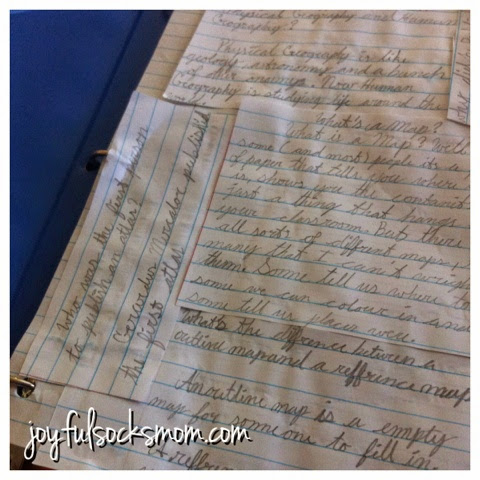 Physical Geography and Human
Geography?
Physical Geography is like
geology, astronomy, and a bunch
of other ones. Now human
geography is studying life around the
What's a Map?
What is a Map? Well
some (and most) people its a
of paper that tells you where
is, shows you the
just a thing that hangs
your classroom. But there
all sorts of different maps,
many that I can't
them. Some tell us where to
some we can colour in
some tell us places were.
What's the difference between a
outline map and a reffrence map
An outline map is a empty
map for someone to fill in.
A reffren
Who was the first person
to publish an atlas?
Gerardus Mercator published
the first atlas
joyfulsocksmom.com